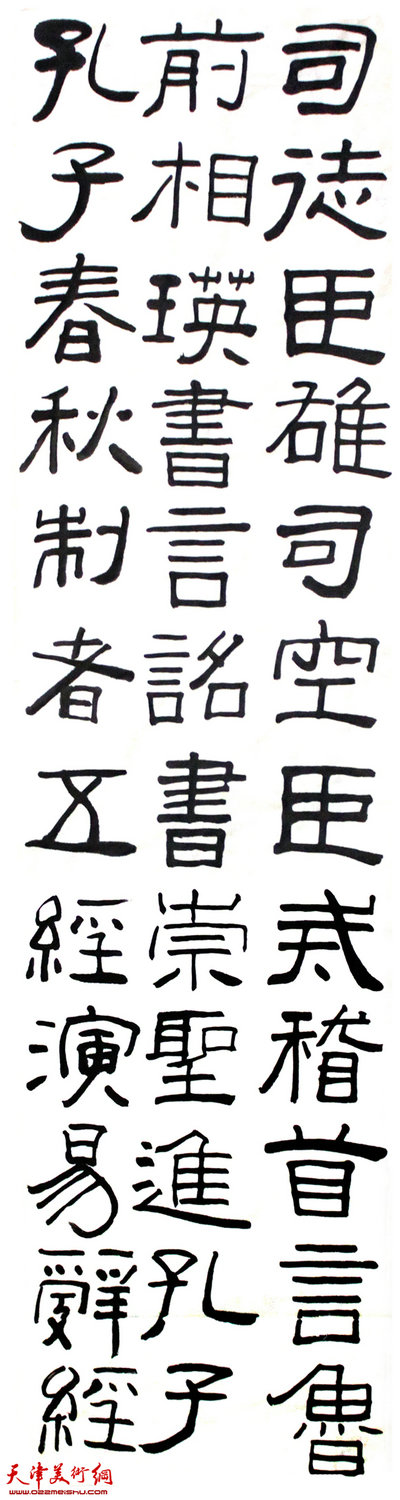 司徒臣雄司空臣戒稽首言魯
前相瑛書言詔書崇聖進孔子
孔子春秋制者五經演易辭經
天津美術網
www.022meishu.com